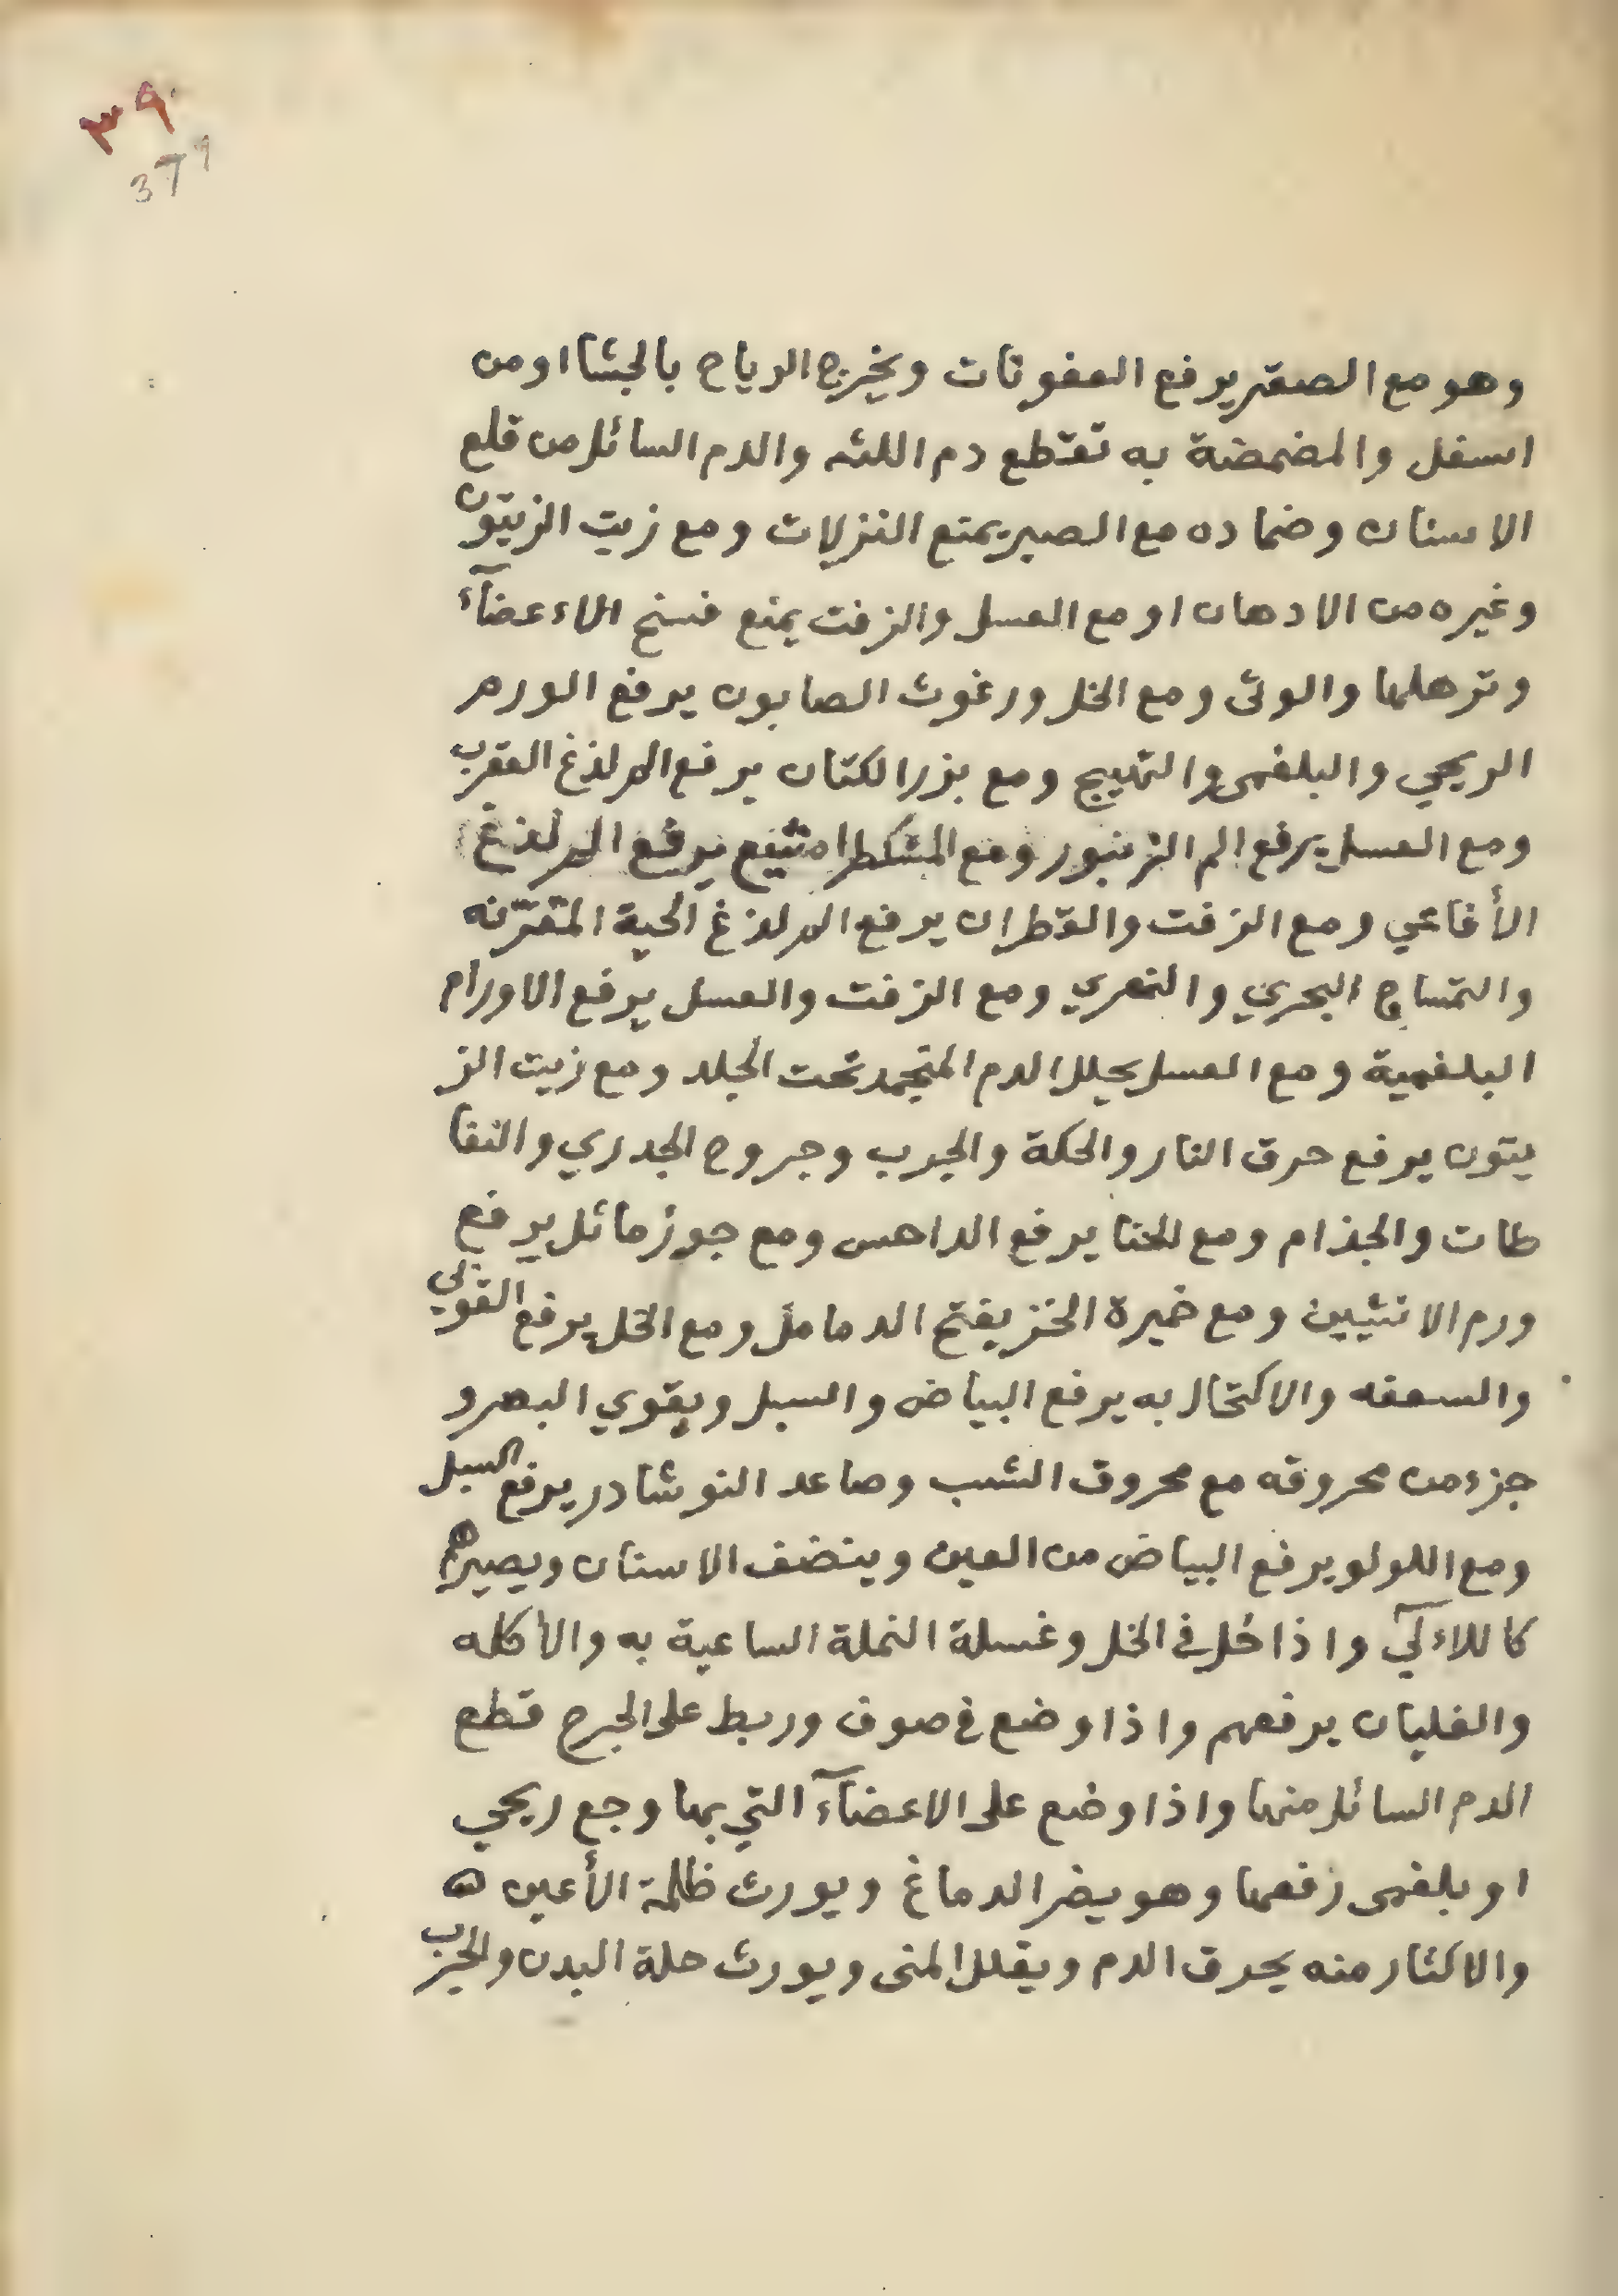 ٣٩
379
وهو مع الصعتر يرفع العفونات ويخرج الرياح بالجشا او من
اسفل والمضمضة به تقطع دم اللثه والدم السائل من قلع
الاسنان وضماده مع الصبر يمنع النزلات ومع زيت الزيتون
وغيره من الادهان او مع العسل والزفت يمنع فسخ الاءعضآء
وترهلها والوثى ومع الخل ورغوت الصابون يرفع الورم
الريحي والبلغمى والتهيج ومع بزر الكتان يرفع الم لذغ العقرب
ومع العسل يرفع الم الزنبور ومع المشكطرامشيع يرفع الم لذغ
الأفاعي ومع الزفت والقطران يرفع الم لذغ الحية المقرّنه
والتمساح البحري والنهري ومع الزفت والعسل يرفع الاورام
البلغمية ومع العسل يحلل الدم المتجمد تحت الجلد ومع زيت الز
يتون يرفع حرق النار والحكة والجرب وجروح الجدري والنفا
طات والجذام ومع الحنا يرفع الداحس ومع جوز ماثل يرفع
ورم الانثيين ومع خميرة الخبز يفتح الدمامل ومع الخل يرفع القوبى
والسعفه والاكتحال به يرفع البياض والسبل ويقوي البصر و
جزء من محروقه مع محروق الشب وصاعد النوشادر يرفع السبل
ومع اللولو يرفع البياض من العين وينضف الاسنان ويصيرها
كاللاءلي واذا حُل في الخل وغسلة النملة الساعية به والاكله
والغليان يرفعهم واذا وضع في صوف وربط على الجرح قطع
الدم السائل منها واذا وضع على الاعضآء التي بها وجع ريحي
او بلغمى رفعها وهو يضر الدماغ ويورث ظلمة الأعين
والاكثار منه يحرق الدم ويقلل المنى ويورث حكة البدن والجرب